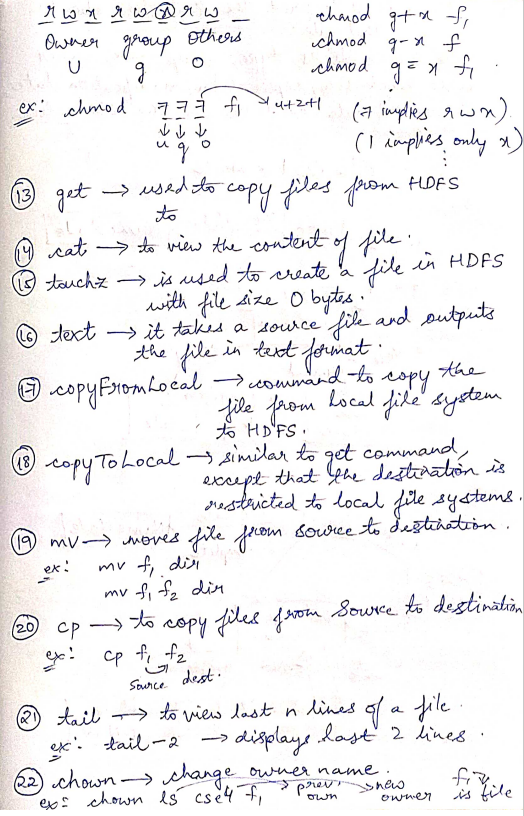 r w x r w x r w _
Owner group others
U g O
chmod g+x f1
chmod g-x f
chmod g=x f1
ex: chmod 7 7 7 f1 → 4+2+1 (7 implies rwx)
u g o (1 implies only x)
⋮
(13) get → used to copy files from HDFS
to
(14) cat → to view the content of file.
(15) touchz → is used to create a file in HDFS
with file size 0 bytes.
(16) text → it takes a source file and outputs
the file in text format.
(17) copyFromLocal → command to copy the
file from Local file system
to HDFS.
(18) copyToLocal → similar to get command,
except that the destination is
restricted to local file systems.
(19) mv → moves file from source to destination.
ex: mv f1 dir
mv f1 f2 dir
(20) cp → to copy files from Source to destination
ex: cp f1 f2
Source dest.
(21) tail → to view last n lines of a file.
ex: tail -2 → displays last 2 lines.
(22) chown → change owner name.
ex: chown ls cse4 f1 → prev. own → new owner f1 → is file